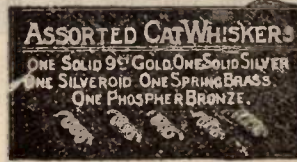 ASSORTED CATWHISKERS
ONE SOLID 9CT GOLD. ONE SOLID SILVER
ONE SILVEROID. ONE SPRING BRASS.
ONE PHOSPHER BRONZE.